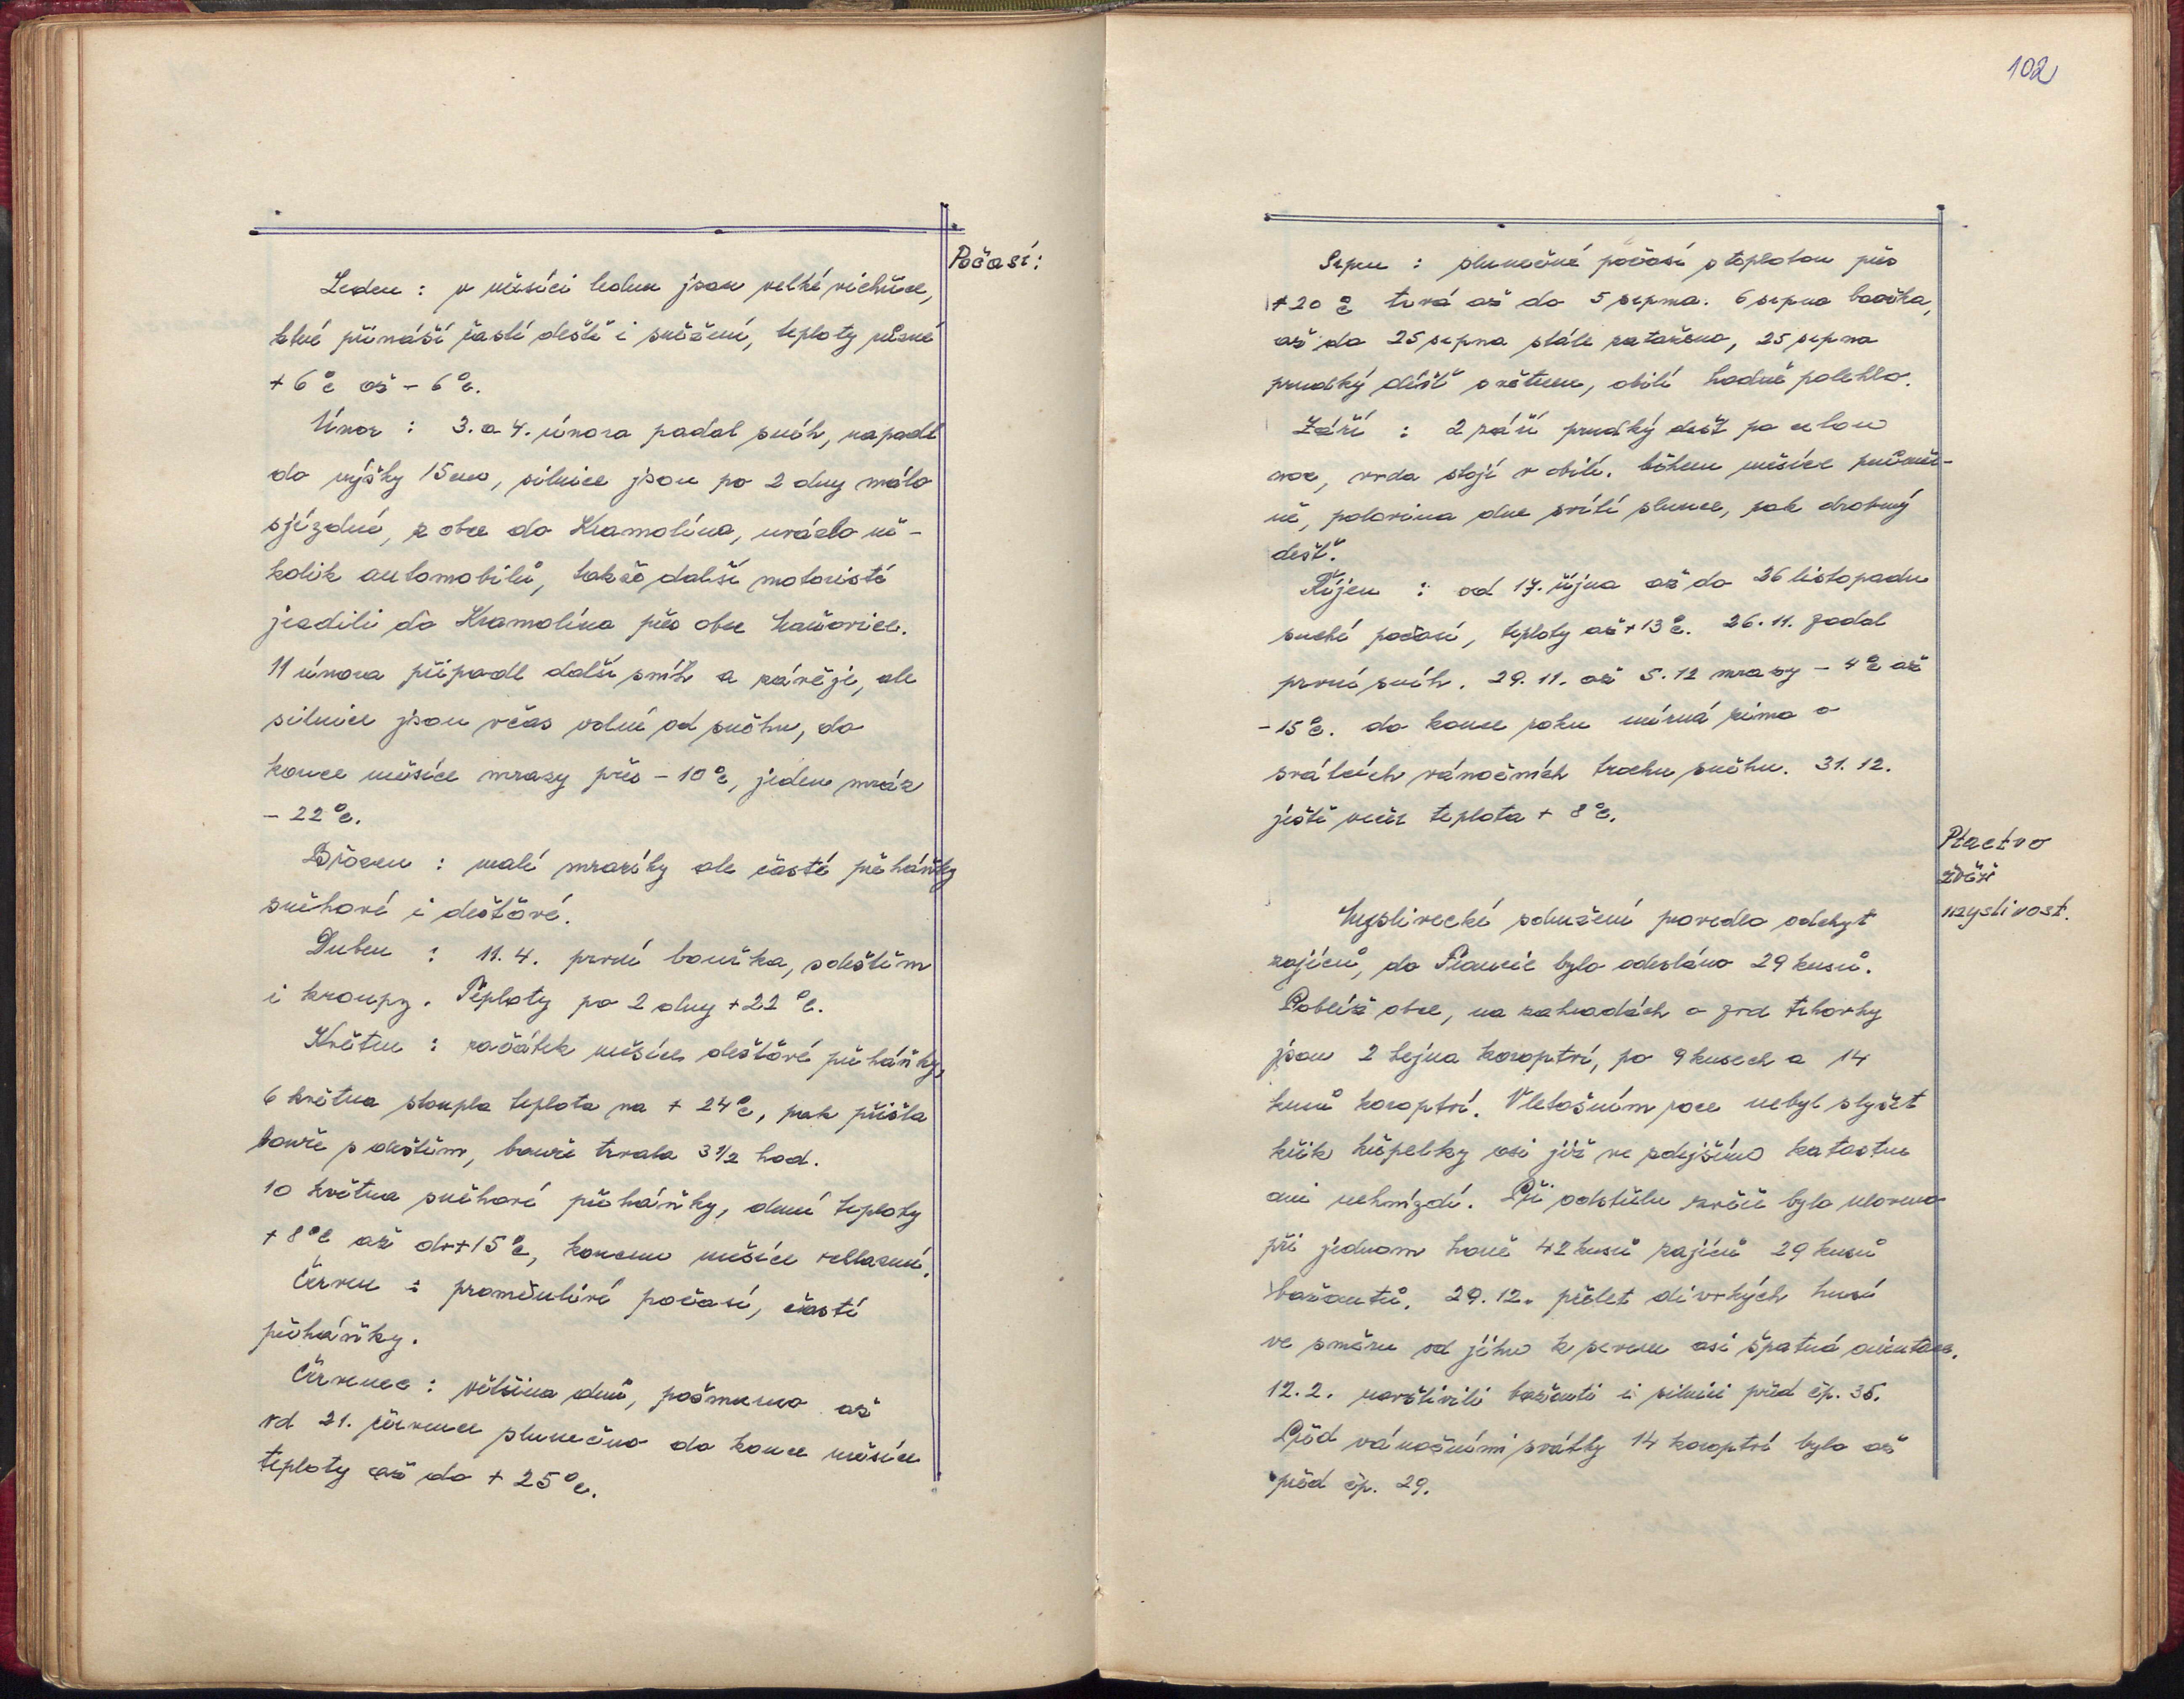 Počasí:
Leden : v měsíci lednu jsou velké vichřice,
které přináší časté deště i sněžení, teploty různé
+ 6°c až - 6°c.
Únor : 3. a 4. února padal sníh, napadl
do výšky 15 cm, silnice jsou po 2 dny málo
sjízdné, z obce do Kramolína, uvázlo ně-
kolik automobilů, takže další motoristé
jezdili do Kramolína přes obec
11 února připadl další sníh a závěje, ale
silnice jsou včas volné od sněhu, do
konce měsíce mrazy přes - 10°c, jeden mráz
- 22°c.
Březen : malé mrazíky ale časté přeháňky
sněhové i dešťové.
Duben : 11. 4. první bouřka, s deštěm
i kroupy. Teploty po 2 dny + 22°c.
Květen : začátek měsíce dešťové přeháňky,
6 května stoupla teplota na + 24°c, pak přišla
bouře s deštěm, bouře trvala 3 1/2 hod.
10 května sněhové přeháňky, denní teploty
+ 8°c až do + 15°c, koncem měsíce
Červen : proměnlivé počasí, časté
přeháňky.
Červenec : většina dnů, pošmurno až
od 21. července slunečno do konce měsíce
teploty až do + 25°c.
102
Srpen : slunečné počasí s teplotou přes
+ 20°c trvá až do 5 srpna. 6 srpna bouřka,
až do 25 srpna stále zataženo, 25 srpna
prudký déšť s větrem, obilí hodně polehlo.
Září : 2 září prudký dešť po celou
noc, voda stojí v obilí. během měsíce proměn-
ně, polovina dne svítí slunce, pak drobný
dešť.
Říjen : od 17. října až do 26 listopadu
suché počasí, teploty až + 13°c. 26. 11. padal
první sníh. 29. 11. až 5. 12 mrazy - 4°c až
- 15°c. do konce roku mírná zima o
svátcích vánočních trochu sněhu. 31. 12.
ještě večer teplota + 8°c.
Ptactvo
zvěř
myslivost.
Myslivecké sdružení provedlo odchyt
zajíců, do bylo odesláno 29 kusů.
Poblíž obce, na zahradách a pod
jsou 2 hejna koroptví, po 9 kusech a 14
kusů koroptví. V letošním roce nebyl slyšet
křik křepelky asi již ve zdejším katastru
ani nehnízdí. Při odstřelu zvěře bylo uloveno
při jednom honě 42 kusů zajíců 29 kusů
bažantů. 29. 12. přelet divokých husí
ve směru od jihu k severu asi špatná orientace.
12. 2. navštívili bažanti i silnici před čp. 35.
Před vánočními svátky 14 koroptví bylo až
před čp. 29.